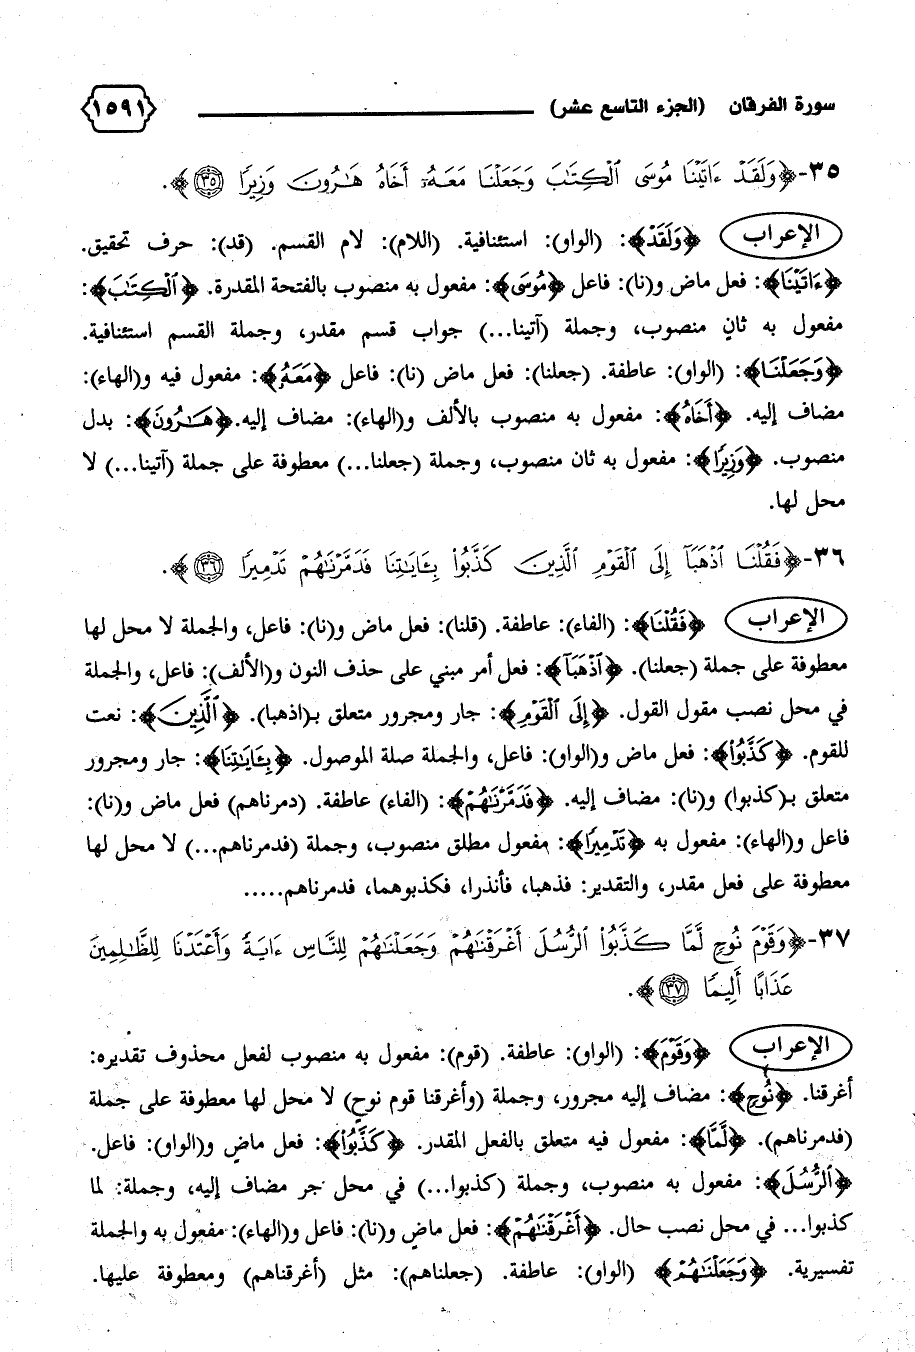 سورة الفرقان (الجزء التاسع عشر) ١٥٩١
٣٥-﴿وَلَقَدْ ءَاتَيْنَا مُوسَى ٱلْكِتَٰبَ وَجَعَلْنَا مَعَهُۥٓ أَخَاهُ هَٰرُونَ وَزِيرًا ۝٣٥﴾.
الإعراب ﴿وَلَقَدْ﴾: (الواو): استئنافية. (اللام): لام القسم. (قد): حرف تحقيق.
﴿ءَاتَيْنَا﴾: فعل ماض و(نا): فاعل ﴿مُوسَى﴾: مفعول به منصوب بالفتحة المقدرة. ﴿ٱلْكِتَٰبَ﴾:
مفعول به ثانٍ منصوب، وجملة (آتينا...) جواب قسم مقدر، وجملة القسم استئنافية.
﴿وَجَعَلْنَا﴾: (الواو): عاطفة. (جعلنا): فعل ماض (نا): فاعل ﴿مَعَهُۥٓ﴾: مفعول فيه و(الهاء):
مضاف إليه. ﴿أَخَاهُ﴾: مفعول به منصوب بالألف و(الهاء): مضاف إليه. ﴿هَٰرُونَ﴾: بدل
منصوب. ﴿وَزِيرًا﴾: مفعول به ثان منصوب، وجملة (جعلنا...) معطوفة على جملة (آتينا...) لا
محل لها.
٣٦-﴿فَقُلْنَا ٱذْهَبَآ إِلَى ٱلْقَوْمِ ٱلَّذِينَ كَذَّبُوا۟ بِـَٔايَٰتِنَا فَدَمَّرْنَٰهُمْ تَدْمِيرًا ۝٣٦﴾.
الإعراب ﴿فَقُلْنَا﴾: (الفاء): عاطفة. (قلنا): فعل ماض و(نا): فاعل، والجملة لا محل لها
معطوفة على جملة (جعلنا). ﴿ٱذْهَبَآ﴾: فعل أمر مبني على حذف النون و(الألف): فاعل، والجملة
في محل نصب مقول القول. ﴿إِلَى ٱلْقَوْمِ﴾: جار ومجرور متعلق بـ(اذهبا). ﴿ٱلَّذِينَ﴾: نعت
للقوم. ﴿كَذَّبُوا۟﴾: فعل ماض و(الواو): فاعل، والجملة صلة الموصول. ﴿بِـَٔايَٰتِنَا﴾: جار ومجرور
متعلق بـ(كذبوا) و(نا): مضاف إليه. ﴿فَدَمَّرْنَٰهُمْ﴾: (الفاء) عاطفة. (دمرناهم) فعل ماض و(نا):
فاعل و(الهاء): مفعول به ﴿تَدْمِيرًا﴾: مفعول مطلق منصوب، وجملة (فدمرناهم...) لا محل لها
معطوفة على فعل مقدر، والتقدير: فذهبا، فأنذرا، فكذبوهما، فدمرناهم.....
٣٧-﴿وَقَوْمَ نُوحٍ لَّمَّا كَذَّبُوا۟ ٱلرُّسُلَ أَغْرَقْنَٰهُمْ وَجَعَلْنَٰهُمْ لِلنَّاسِ ءَايَةً وَأَعْتَدْنَا لِلظَّٰلِمِينَ
عَذَابًا أَلِيمًا ۝٣٧﴾.
الإعراب ﴿وَقَوْمَ﴾: (الواو): عاطفة. (قوم): مفعول به منصوب لفعل محذوف تقديره:
أغرقنا. ﴿نُوحٍ﴾: مضاف إليه مجرور، وجملة (وأغرقنا قوم نوح) لا محل لها معطوفة على جملة
(فدمرناهم). ﴿لَّمَّا﴾: مفعول فيه متعلق بالفعل المقدر. ﴿كَذَّبُوا۟﴾: فعل ماضٍ و(الواو): فاعل.
﴿ٱلرُّسُلَ﴾: مفعول به منصوب، وجملة (كذبوا...) في محل جر مضاف إليه، وجملة: لما
كذبوا... في محل نصب حال. ﴿أَغْرَقْنَٰهُمْ﴾: فعل ماضٍ و(نا): فاعل و(الهاء): مفعول به والجملة
تفسيرية. ﴿وَجَعَلْنَٰهُمْ﴾ (الواو): عاطفة. (جعلناهم): مثل (أغرقناهم) ومعطوفة عليها.